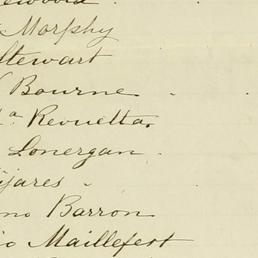 Morphy
Stewart
Bourne
a Revuelta,
Lonergan
ijares
no Barron
io Maillefert